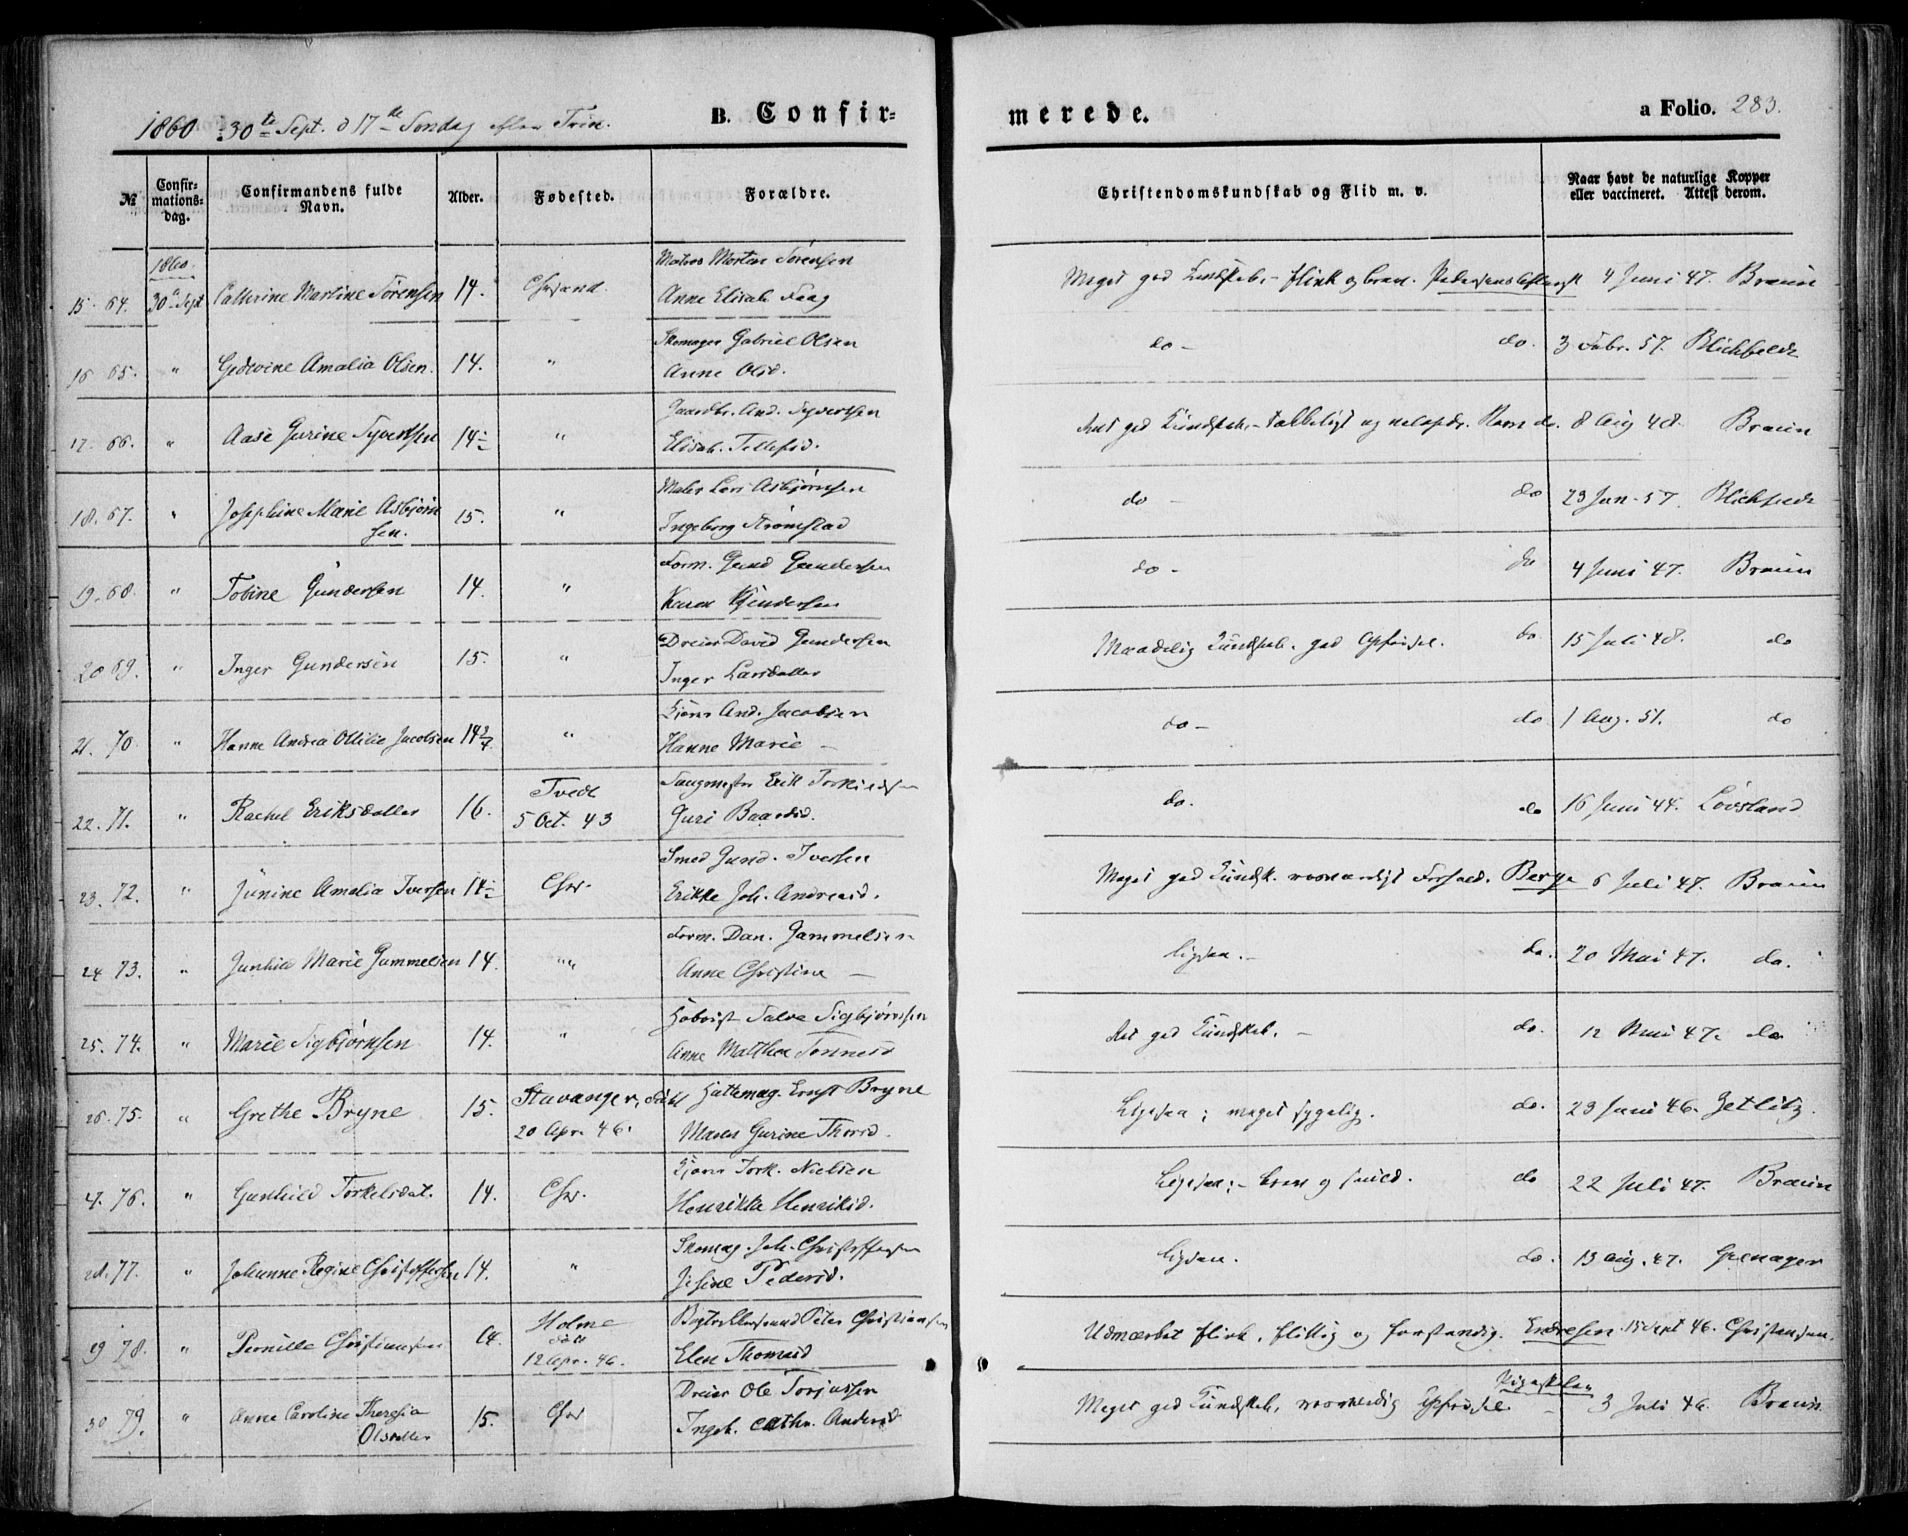 1860 30te Sept. 17de Søndag efter Trin.
B. Confir-
merede.
a Folio. 283.
№
Confirmationsdag.
Confirmandens fulde Navn.
Alder.
Fødested.
Forældre.
Christendomskundskab og Flid m. v.
Naar havt de naturlige Kopper eller vaccineret. Attest derom.
1860
15. 64. 30te Sept Cathrine Martine Sørensen 14. Chrsand. Matros Morten Sørensen
Anne Elisab. Faag
Meget god Kundskab, flink og brav. 4 Juni 47. Braun
16 65. " Gedevine Amalia Olsen. 14. " Skomager Gabriel Olsen
Anne Olsd.
do - do. 3 Febr. 57. Blichfeldt
17. 66. " Aase Gurine Syvertsen 14½ " Gaardbr. And. Syvertsen
Elisab. Tellefsd.
god Kundskab, do. 8 Aug 48. Braun
18. 67. " Josephine Marie Asbjørn
sen. 15. " Maler Lars Asbjørnsen
Ingeborg Strømstad
do - do 23 Jan. 57. Blichfeldt
19. 68. " Tobine Gundersen 14. " Form. Gund Gundersen
Karen Gundersen
do - do 4 Juni 47. Braun
20 69. " Inger Gundersen 15. " Dreier David Gundersen
Inger Larsdatter
Maadelig Kundskab. god Opførsel. do. 15 Juli 48. do
21. 70. " Hanne Andrea Ottilie Jacobsen 14 " And. Jacobsen
Hanne Marie -
do - do 1 Aug. 51. do
22. 71. " Rachel Eriksdatter 16. Tvedt
5 Oct. 43 Saugmester Erik Torkildsen
Guri Baardsd.
do. do 16 Juni 44. Løvsland
23. 72. " Junine Amalia Iversen 14½ Chrs. Smed Gund. Iversen
Erikke Joh. Andreasd.
Meget god Kundsk. Forhold. Berge 6 Juli 47. Braun
24 73. " Gunhild Marie Gammelsen 14. " Form. Dan. Gammelsen
Anne Christine -
ligesaa. - do. 20 Mai 47. do.
25. 74. " Marie Sigbjørnsen 14. " Salve Sigbjørnsen
Anne Malthea Tønnesd
god Kundskab. - do. 12 Mai 47. do
26. 75. " Grethe Bryne 15. Stavanger, født
20 Apr. 46. Hattemag. Ernst Bryne
Maren Gurine Thorsd.
Ligesaa; meget sygelig. do. 23 Juni 46. Zetlitz.
27. 76. " Gunhild Torkelsdat. 14. Chrs. Tork. Nielsen
Henrikka Henriksd.
Ligesaa; - brav og do 22 Juli 47. Braun
28. 77. " Johanne Regine Christoffersen 14. " Skomag. Joh. Christoffersen
Jesine Pedersd.
ligesaa. do. 13 Aug. 47. Grenager
29 78. " Pernille Christiansen 14. Holme
født
12 Apr. 46. Peter Christiansen
Elen Thomasd
Udmærket flink, flittig og forstandig. Endresen. 15 Sept 46. Christensen.
30 79. " Anne Caroline Theresia
Olsdatter 15. Chrs Dreier Ole Torjussen
Ingeb. Cathr. Andersd
Pigeskolen
Meget god Kundskab, Opførsel. - 3 Juli 46. Braun